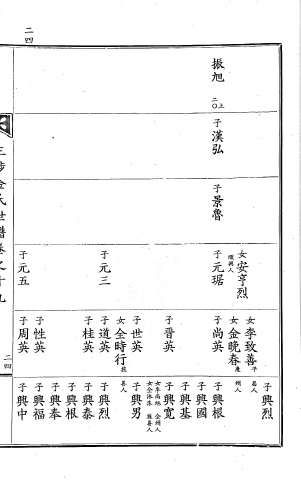 二四
振旭 二〇上
子漢弘
子景魯
女安亨烈 順興人
子元琚
子元三
子元五
女李致善 平昌人
女金晩春 慶州人
子尚英
子晋英
子世英
女全時行 旌善人
子道英
子桂英
子性英
子周英
子興烈
子興根
子興國
子興基
子興寬
女李尚旭 全州人
女全洙 旌善人
子興男
子興烈
子興泰
子興根
子興奉
子興福
子興中
三陟金氏世譜卷之十九
二四